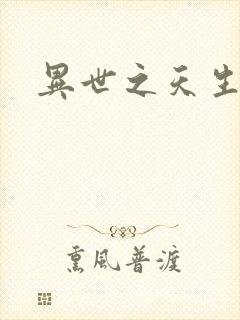 異世之天生
熏風普渡